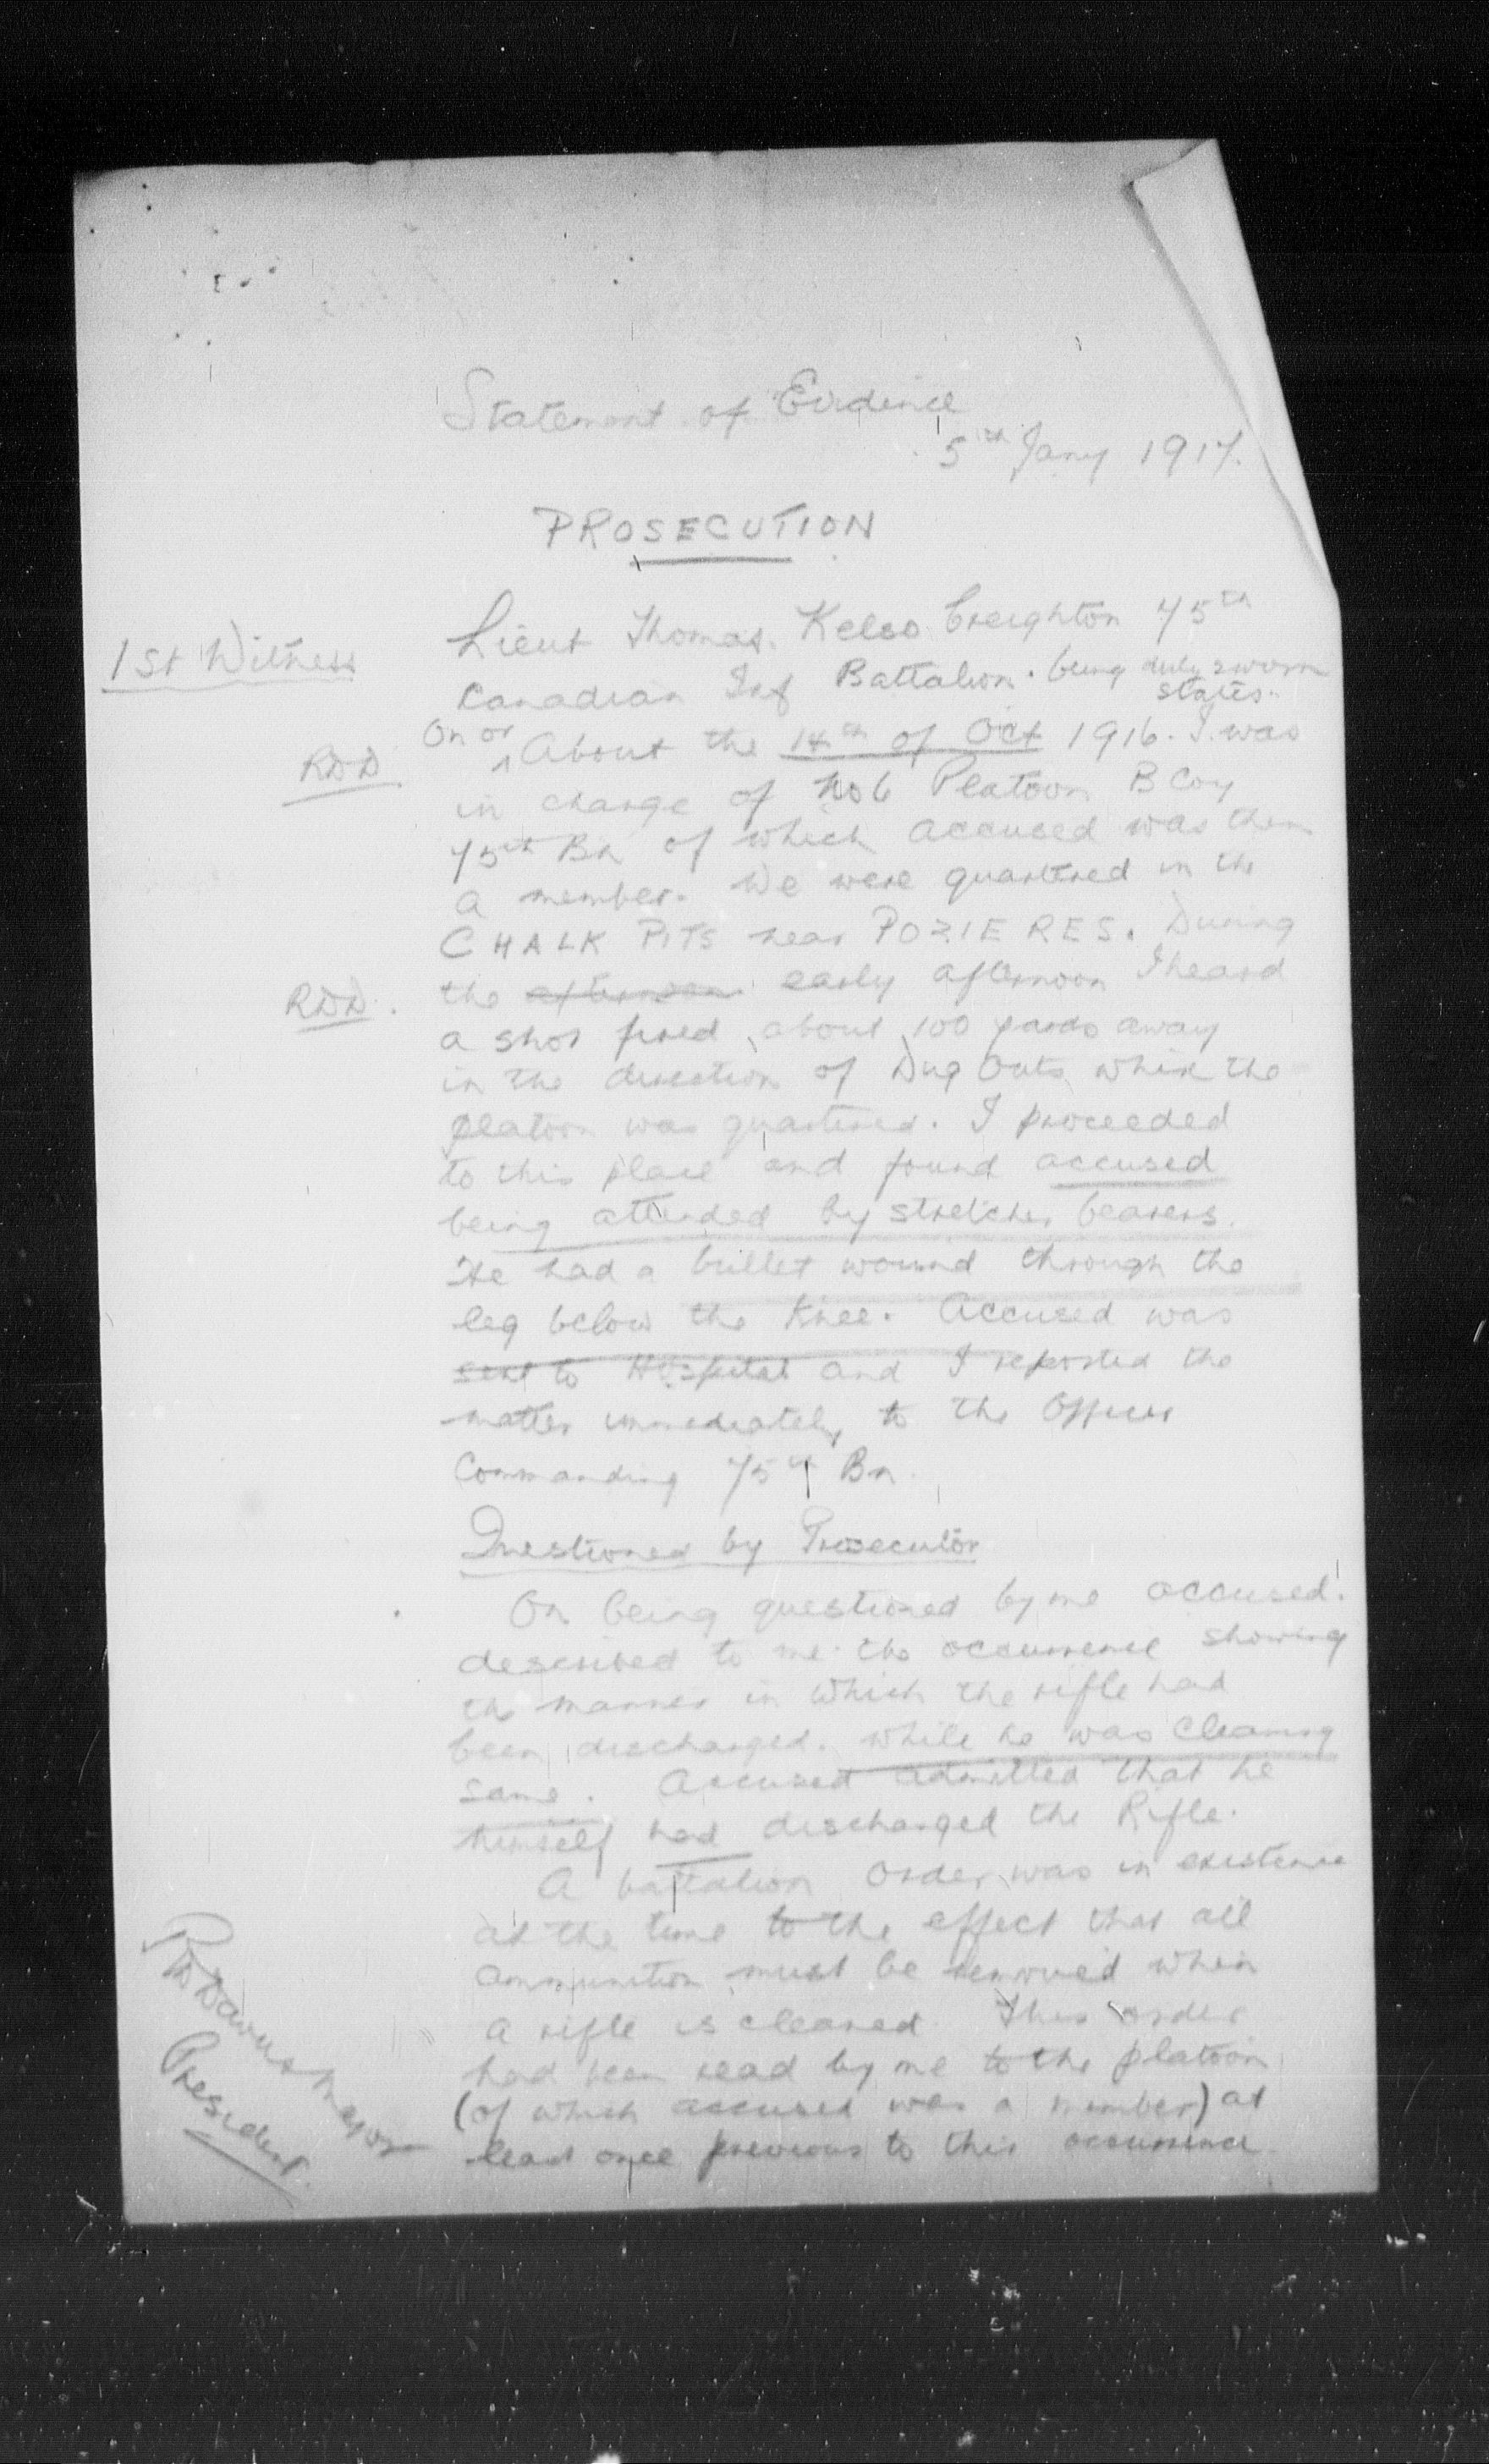 Statement of Evidence
5th Jany 1917.
PROSECUTION
1st Witness
Lieut Thomas. Kelso Creighton 75th
Canadian Inf Battalion. being duly sworn
states.
On or
RDD
About the 14th of Oct 1916. I was
in charge of No 6 Platoon B Coy
75th Bn of which accused was then
a member. We were quartered in the
CHALK PITS near POZIERES. During
RDD.
the afternoon early afternoon I heard
a shot fired, about 100 yards away
in the direction of Dug Outs where the
platoon was quartered. I proceeded
to this place and found accused
being attended by stretcher bearers.
He had a bullet wound through the
leg below the Knee. Accused was
sent to Hospital and I reported the
matter immediately to the Officer
Commanding 75th Bn.
Questioned by Prosecutor
On being questioned by me accused.
described to me the occurrence showing
the manner in which the rifle had
been discharged. while he was cleaning
same. Accused admitted that he
himself had discharged the Rifle.
A battalion Order was in existence
at the time to the effect that all
ammunition must be removed when
a rifle is cleaned. This order
had been read by me to the platoon
(of which accused was a member) at
least once previous to this occurrence.
Major
President.